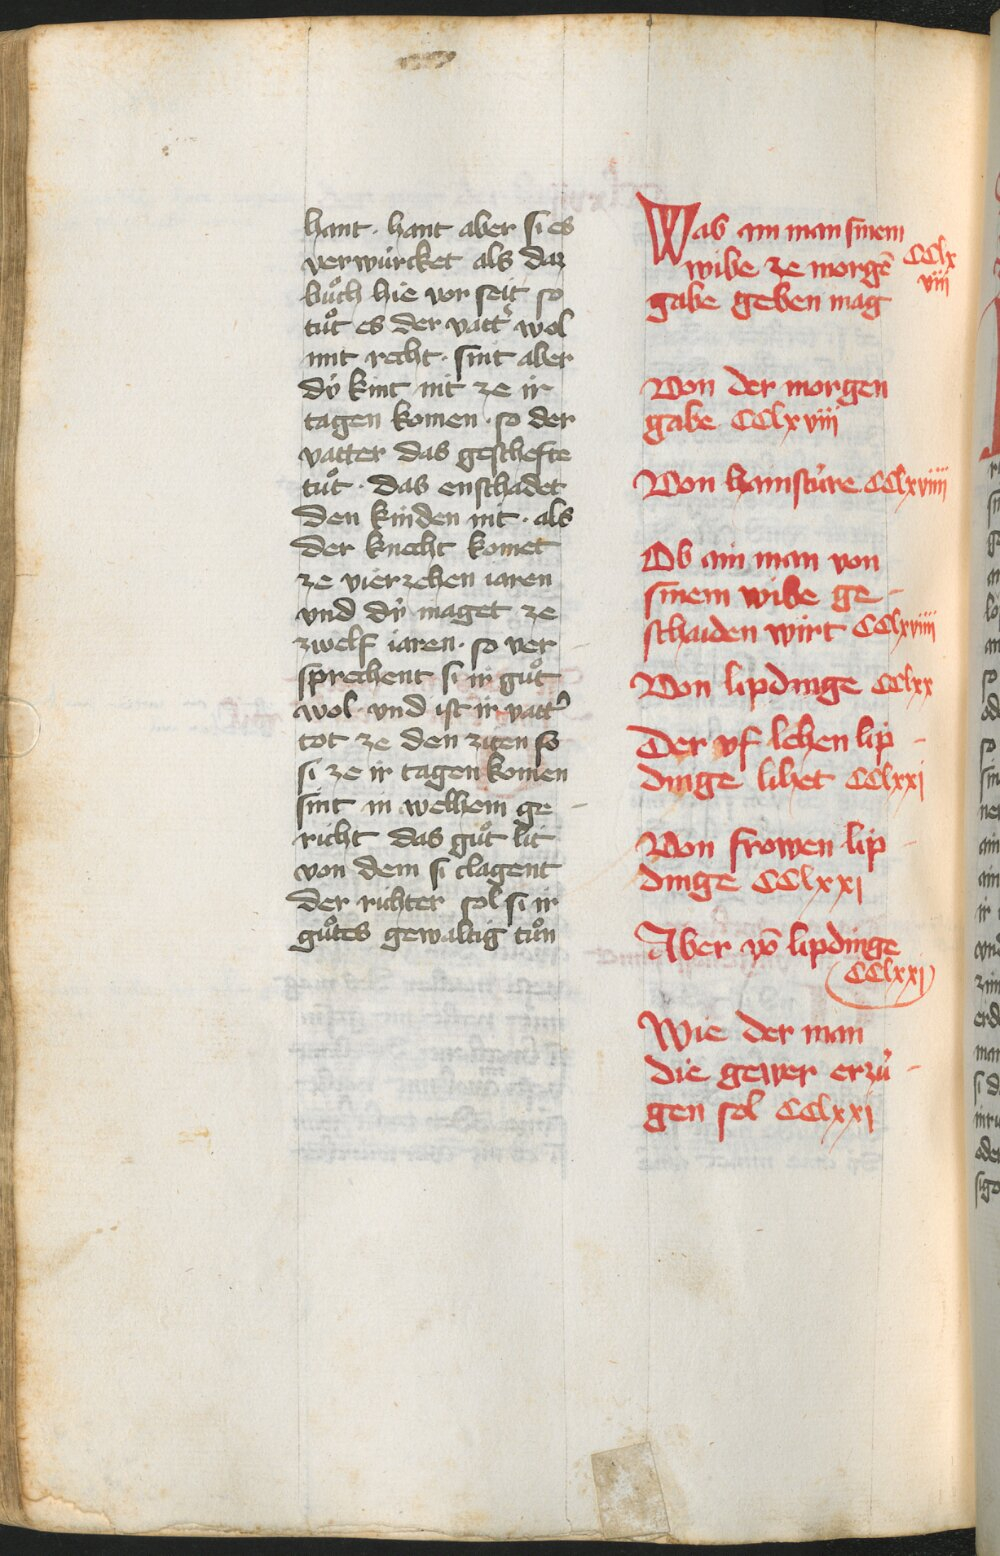 hant · hant aber si es
verwúrcket als daz
bůch hie vor seit so
tůt es der vatt' wol
mit recht · sint aber
dÿ kint nit ze ir
tagen komen · so der
vatter das geschefte
tůt · das enschadet
den kinden nit · als
der knecht komet
ze vierzehen iaren
vnd dÿ maget ze
zwelf iaren · so ver-
sprechent si ir gůt
wol · vnd ist ir vatt'
tot ze den ziten so
si ze ir tagen komen
sint in welhem ge-
richt das gůt lit
von dem si clagent
der richter sol si ir
gůtes gewaltig tůn
Was ain man sinem
wibe ze morgē CClx
viii
gabe geben mag
Von der morgen
gabe CClxviii
Von hainstúre CClxviiii
Ob ain man von
sinem wibe ge-
schaiden wirt CClxviiii
Von lipdinge CClxx
Der vf lehen lip-
dinge lihet CClxxi
Von frowen lip-
dinge CClxxi
Aber vō lipdinge
CClxxi
Wie der man
die gewer erzú-
gen sol CClxxi